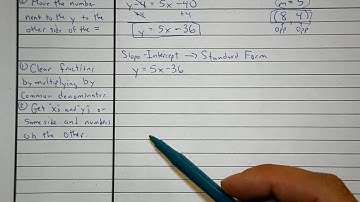 ② Move the number
next to the y to the
other side of the =
y-4 = 5x-40
+4 +4
y = 5x-36
m=5
(8, 4)
opp opp
Slope-Intercept → Standard Form
y = 5x-36
① Clear fractions
by multiplying by
common denominator.
② Get "x's and "y's on
same side and numbers
on the other.